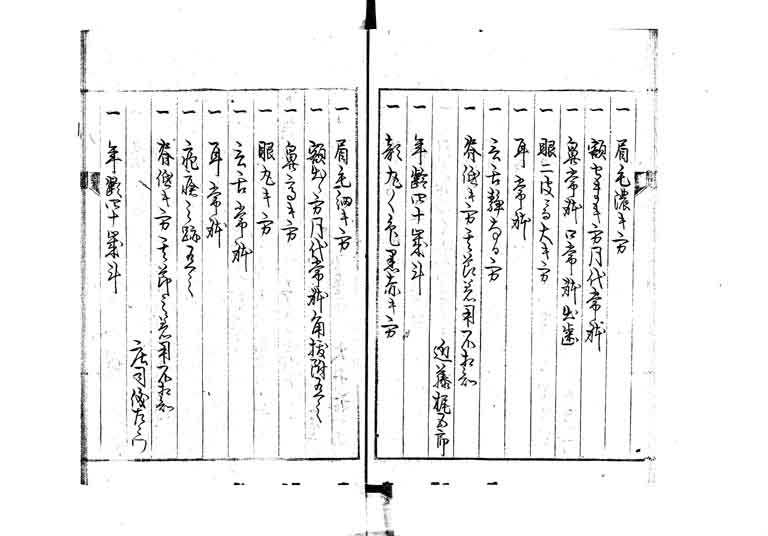 一 眉毛濃キ方
一 額せまき方月代常躰
一 鼻常躰口常躰出歯
一 眼二皮ニ而大キ方
一 耳常躰
一 言舌静なる方
一 脊低キ方其節着用不相知
近藤梶五郎
一 年齢四十歳斗
一 顔丸ク色黒赤キ方
一 眉毛細キ方
一 額出候方月代常躰角抜附有之
一 鼻高キ方
一 眼丸キ方
一 言舌常躰
一 耳常躰
一 疱瘡之跡有之
一 脊低キ方其節之着用不相知
庄司儀左衛門
一 年齢四十歳斗